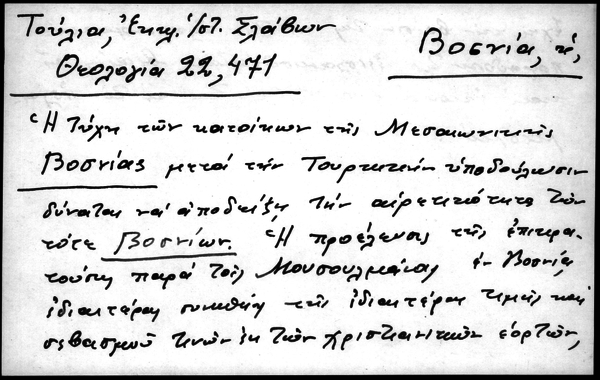 Τούλια, Ἐκκλ. Ἱστ. Σλάβων
Θεολογία 22, 471
Βοσνία, ἡ,
Ἡ τύχη τῶν κατοίκων τῆς Μεσαιωνικῆς
Βοσνίας μετά τήν Τουρκικήν ὑποδούλωσιν
δύναται νά ἀποδείξῃ τήν αἱρετικότητα τῶν
τότε Βοσνίων. Ἡ προέλευσις τῆς ἐπικρα-
τούσης παρά τοῖς Μουσουλμάνοις ἐν Βοσνίᾳ,
ἰδιαιτέρας συνηθείας τῆς ἰδιαιτέρας τιμῆς καί
σεβασμοῦ τινῶν ἐκ τῶν χριστιανικῶν ἑορτῶν,